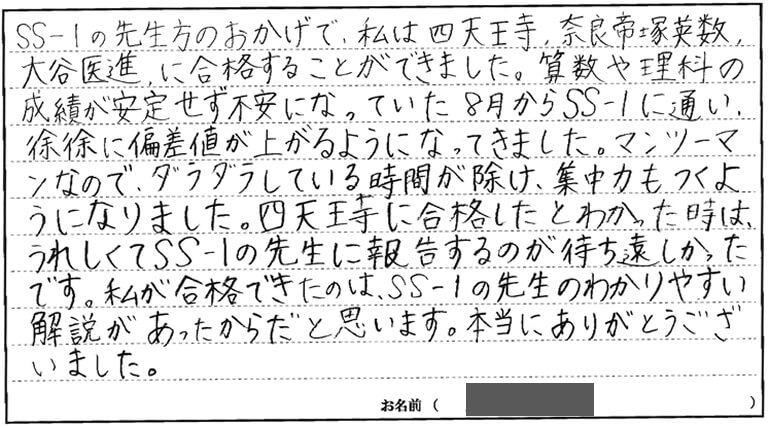 SS-1の先生方のおかげで、私は四天王寺、奈良帝塚英数、
大谷医進、に合格することができました。算数や理科の
成績が安定せず不安になっていた8月からSS-1に通い、
徐徐に偏差値が上がるようになってきました。マンツーマ
ンなので、ダラダラしている時間が除け、集中力もつくよ
うになりました。四天王寺に合格したとわかった時は、
うれしくてSS-1の先生に報告するのが待ち遠しかった
です。私が合格できたのは、SS-1の先生のわかりやすい
解説があったからだと思います。本当にありがとうござ
いました。
お名前（ ）